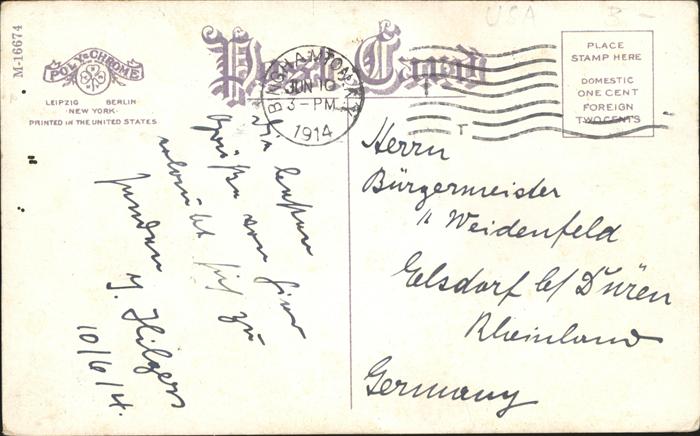 USA
B-
M-16674
Post Card
POLYSCHROME
LEIPZIG BERLIN
· NEW YORK ·
PRINTED IN THE UNITED STATES
BINGHAMTON, N.Y.
JUN 10
3-PM
1914
PLACE
STAMP HERE
DOMESTIC
ONE CENT
FOREIGN
TWO CENTS
Die besten
Grüße von hier
erlaubt sich zu
senden
J. Hilgers
10/6/14.
Herrn
Bürgermeister
" Weidenfeld
Elsdorf b/ Düren
Rheinland
Germany